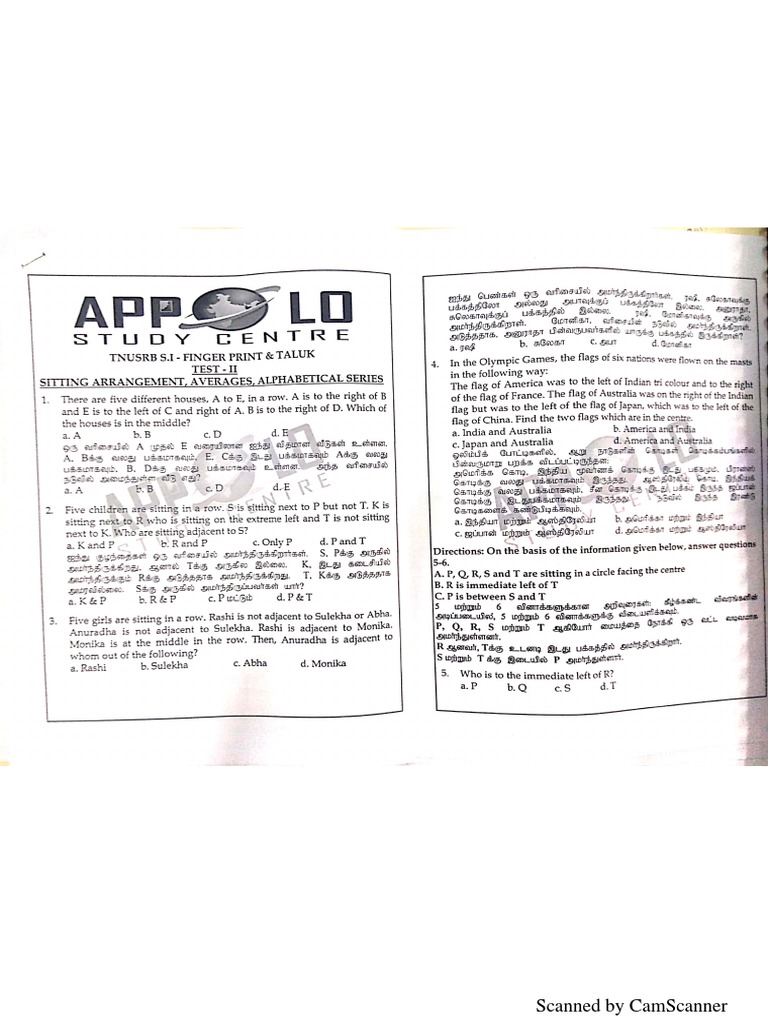 APPOLO
STUDY CENTRE
TNUSRB S.I - FINGER PRINT & TALUK
TEST - II
SITTING ARRANGEMENT, AVERAGES, ALPHABETICAL SERIES
1. There are five different houses, A to E, in a row. A is to the right of B
and E is to the left of C and right of A. B is to the right of D. Which of
the houses is in the middle?
a. A b. B c. D d. E
ஒரு வரிசையில் A முதல் E வரையிலான ஐந்து விதமான வீடுகள் உள்ளன.
A, Bக்கு வலது பக்கமாகவும், E, Cக்கு இடது பக்கமாகவும் Aக்கு வலது
பக்கமாகவும், B, Dக்கு வலது பக்கமாகவும் உள்ளன. அந்த வரிசையில்
நடுவில் அமைந்துள்ள வீடு எது?
a. A b. B c. D d. E
2. Five children are sitting in a row. S is sitting next to P but not T. K is
sitting next to R who is sitting on the extreme left and T is not sitting
next to K. Who are sitting adjacent to S?
a. K and P b. R and P c. Only P d. P and T
ஐந்து குழந்தைகள் ஒரு வரிசையில் அமர்ந்திருக்கிறார்கள். S, Pக்கு அருகில்
அமர்ந்திருக்கிறது. ஆனால் Tக்கு அருகில் இல்லை. K, இடது கடைசியில்
அமர்ந்திருக்கும் Rக்கு அடுத்ததாக அமர்ந்திருக்கிறது. T, Kக்கு அடுத்ததாக
அமரவில்லை. Sக்கு அருகில் அமர்ந்திருப்பவர்கள் யார்?
a. K & P b. R & P c. P மட்டும் d. P & T
3. Five girls are sitting in a row. Rashi is not adjacent to Sulekha or Abha.
Anuradha is not adjacent to Sulekha. Rashi is adjacent to Monika.
Monika is at the middle in the row. Then, Anuradha is adjacent to
whom out of the following?
a. Rashi b. Sulekha c. Abha d. Monika
ஐந்து பெண்கள் ஒரு வரிசையில் அமர்ந்திருக்கிறார்கள். ரஷி, சுலேகாவுக்கு
பக்கத்திலோ அல்லது அபாவுக்குப் பக்கத்திலோ இல்லை. அனுராதா,
சுலேகாவுக்குப் பக்கத்தில் இல்லை. ரஷி, மோனிகாவுக்கு அருகில்
அமர்ந்திருக்கிறாள். மோனிகா, வரிசையின் நடுவில் அமர்ந்திருக்கிறாள்.
அடுத்ததாக, அனுராதா பின்வருபவர்களில் யாருக்கு பக்கத்தில் இருக்கிறாள்?
a. ரஷி b. சுலேகா c. அபா d. மோனிகா
4. In the Olympic Games, the flags of six nations were flown on the masts
in the following way:
The flag of America was to the left of Indian tri colour and to the right
of the flag of France. The flag of Australia was on the right of the Indian
flag but was to the left of the flag of Japan, which was to the left of the
flag of China. Find the two flags which are in the centre.
a. India and Australia b. America and India
c. Japan and Australia d. America and Australia
ஒலிம்பிக் போட்டிகளில், ஆறு நாடுகளின் கொடிகள் கொடிக்கம்பங்களில்
பின்வருமாறு பறக்க விடப்பட்டிருந்தன:
அமெரிக்க கொடி, இந்திய மூவர்ணக் கொடிக்கு இடது பக்கமும், பிரான்ஸ்
கொடிக்கு வலது பக்கமாகவும் இருந்தது. ஆஸ்திரேலிய கொடி, இந்தியக்
கொடிக்கு வலது பக்கமாகவும், சீன கொடிக்கு இடது பக்கம் இருந்த ஜப்பான்
கொடிக்கு இடதுபக்கமாகவும் இருந்தது. நடுவில் இருந்த இரண்டு
கொடிகளைக் கண்டுபிடிக்கவும்.
a. இந்தியா மற்றும் ஆஸ்திரேலியா b. அமெரிக்கா மற்றும் இந்தியா
c. ஜப்பான் மற்றும் ஆஸ்திரேலியா d. அமெரிக்கா மற்றும் ஆஸ்திரேலியா
Directions: On the basis of the information given below, answer questions
5-6.
A. P, Q, R, S and T are sitting in a circle facing the centre
B. R is immediate left of T
C. P is between S and T
5 மற்றும் 6 வினாக்களுக்கான அறிவுரைகள்: கீழ்க்கண்ட விவரங்களின்
அடிப்படையில், 5 மற்றும் 6 வினாக்களுக்கு விடையளிக்கவும்.
P, Q, R, S மற்றும் T ஆகியோர் மையத்தை நோக்கி ஒரு வட்ட வடிவமாக
அமர்ந்துள்ளனர்.
R ஆனவர், Tக்கு உடனடி இடது பக்கத்தில் அமர்ந்திருக்கிறார்.
S மற்றும் Tக்கு இடையில் P அமர்ந்துள்ளார்.
5. Who is to the immediate left of R?
a. P b. Q c. S d. T
Scanned by CamScanner